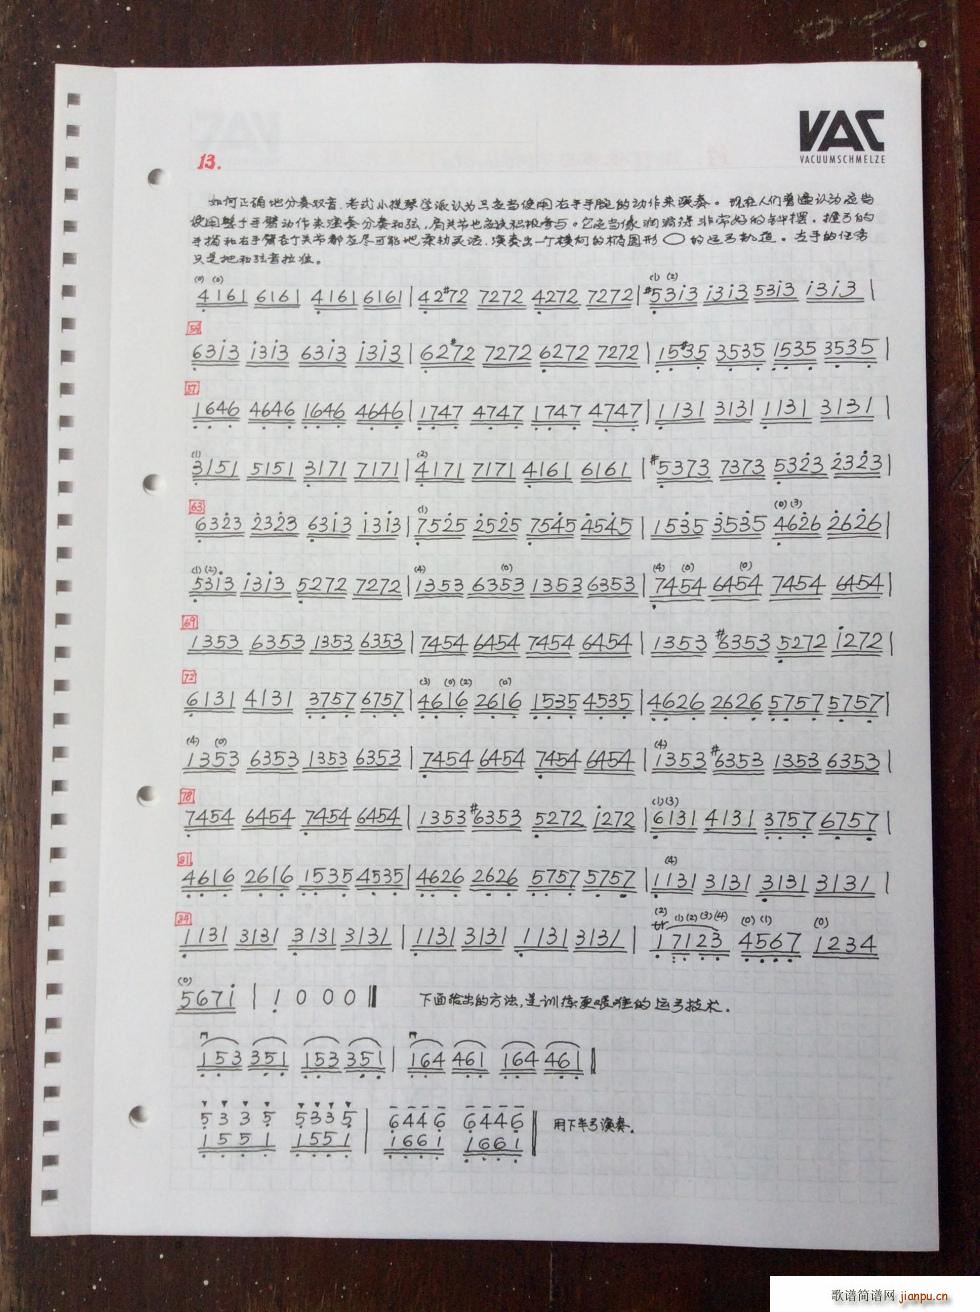 VAC
VACUUMSCHMELZE
13.
如何正确地分奏双音，老式小提琴学派认为只应当使用右手手腕的动作来演奏。现在人们普遍认为应当
使用整个手臂动作来演奏分奏和弦，肩关节也应该积极参与。它应当像润滑得非常好的钟摆，握弓的
手指和右手臂各个关节都应尽可能地柔韧灵活，演奏出一个横向的椭圆形 的运弓轨道。左手的任务
只是把和弦音按准。
(0) (0) (1) (2)
4161 6161 4161 6161 | 42#72 7272 4272 7272 | #53i3 i3i3 53i3 i3i3 |
54
63i3 i3i3 63i3 i3i3 | 62#72 7272 6272 7272 | 15#35 3535 1535 3535 |
57
1646 4646 1646 4646 | 1747 4747 1747 4747 | 1131 3131 1131 3131 |
(1) (2)
3151 5151 3171 7171 | 4171 7171 4161 6161 | #5373 7373 5323 2323 |
63
(1) (0) (3)
6323 2323 63i3 i3i3 | 7525 2525 7545 4545 | 1535 3535 4626 2626 |
(1) (2) (4) (0) (4) (0) (0)
53i3 i3i3 5272 7272 | 1353 6353 1353 6353 | 7454 6454 7454 6454 |
69
1353 6353 1353 6353 | 7454 6454 7454 6454 | 1353 #6353 5272 i272 |
72
(3) (0) (2) (0)
6131 4131 3757 6757 | 4616 2616 1535 4535 | 4626 2626 5757 5757 |
(4) (0) (4)
1353 6353 1353 6353 | 7454 6454 7454 6454 | 1353 #6353 1353 6353 |
78
(1) (3)
7454 6454 7454 6454 | 1353 #6353 5272 i272 | 6131 4131 3757 6757 |
81
(4)
4616 2616 1535 4535 | 4626 2626 5757 5757 | 1131 3131 3131 3131 |
84
(2) (1) (2) (3) (4) (0) (1) (0)
1131 3131 3131 3131 | 1131 3131 1131 3131 | 1 7123 4567 1234
(0)
567i | 1 0 0 0 ‖ 下面给出的方法，是训练更艰难的运弓技术。
153 351 153 351 | 164 461 164 461 ‖
5 3 3 5 5 3 3 5 | 6 4 4 6 6 4 4 6 ‖ 用下半弓演奏。
1 5 5 1 1 5 5 1 | 1 6 6 1 1 6 6 1
歌谱简谱网 jianpu.cn